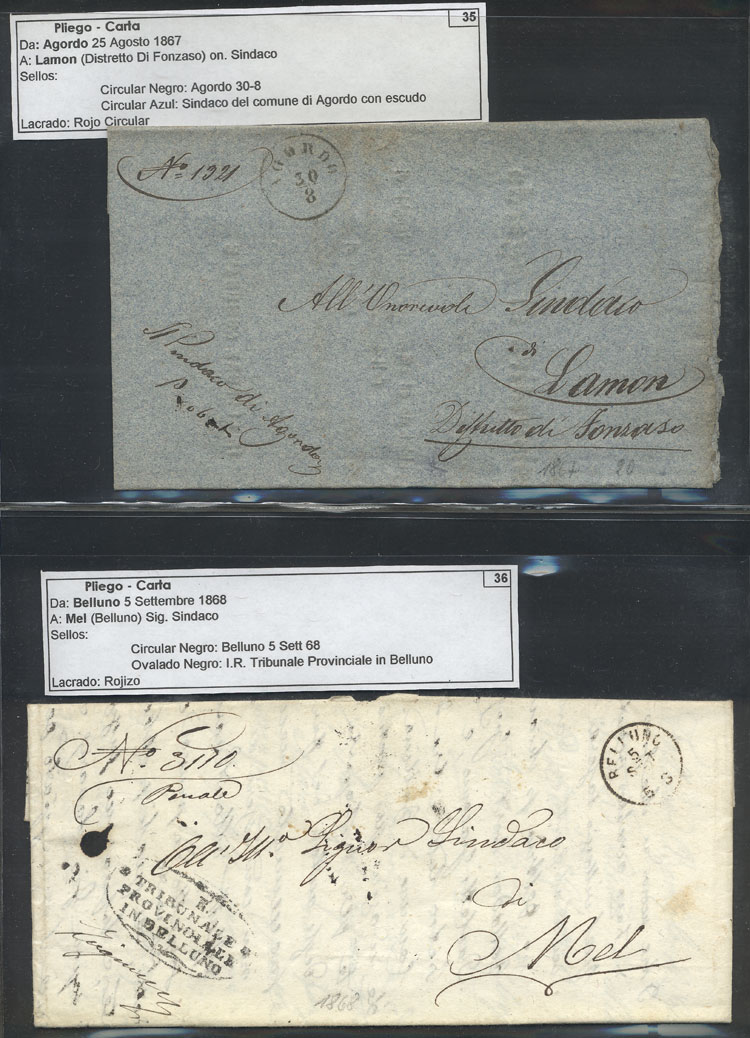 Pliego - Carta
35
Da: Agordo 25 Agosto 1867
A: Lamon (Distretto Di Fonzaso) on. Sindaco
Sellos:
Circular Negro: Agordo 30-8
Circular Azul: Sindaco del comune di Agordo con escudo
Lacrado: Rojo Circular
No. 1921
AGORDO
30
8
All'Onorevole Sindaco
di
Lamon
Distretto di Fonzaso
Il Sindaco di Agordo
1867 20
Pliego - Carta
36
Da: Belluno 5 Settembre 1868
A: Mel (Belluno) Sig. Sindaco
Sellos:
Circular Negro: Belluno 5 Sett 68
Ovalado Negro: I.R. Tribunale Provinciale in Belluno
Lacrado: Rojizo
No. 3110
Penale
BELLUNO
5
SET
All' Ill.o Signor Sindaco
di
Mel
R.
TRIBUNALE
PROVINCIALE
IN BELLUNO
1868